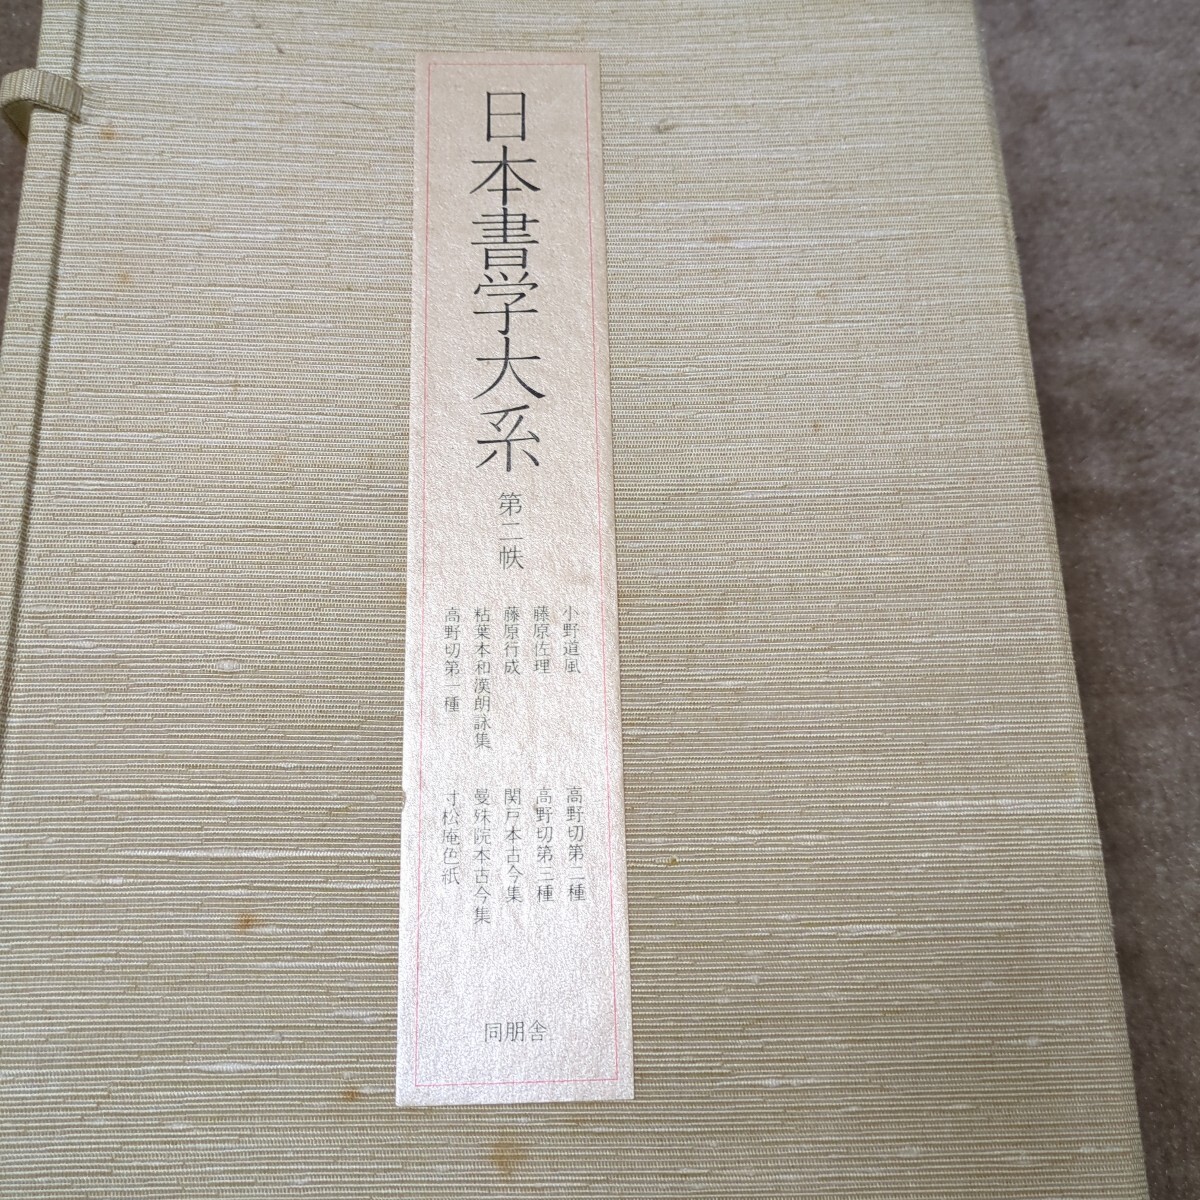 日本書学大系
第二帙
小野道風
藤原佐理
藤原行成
粘葉本和漢朗詠集
高野切第一種
高野切第二種
高野切第三種
関戸本古今集
曼殊院本古今集
寸松庵色紙
同朋舎